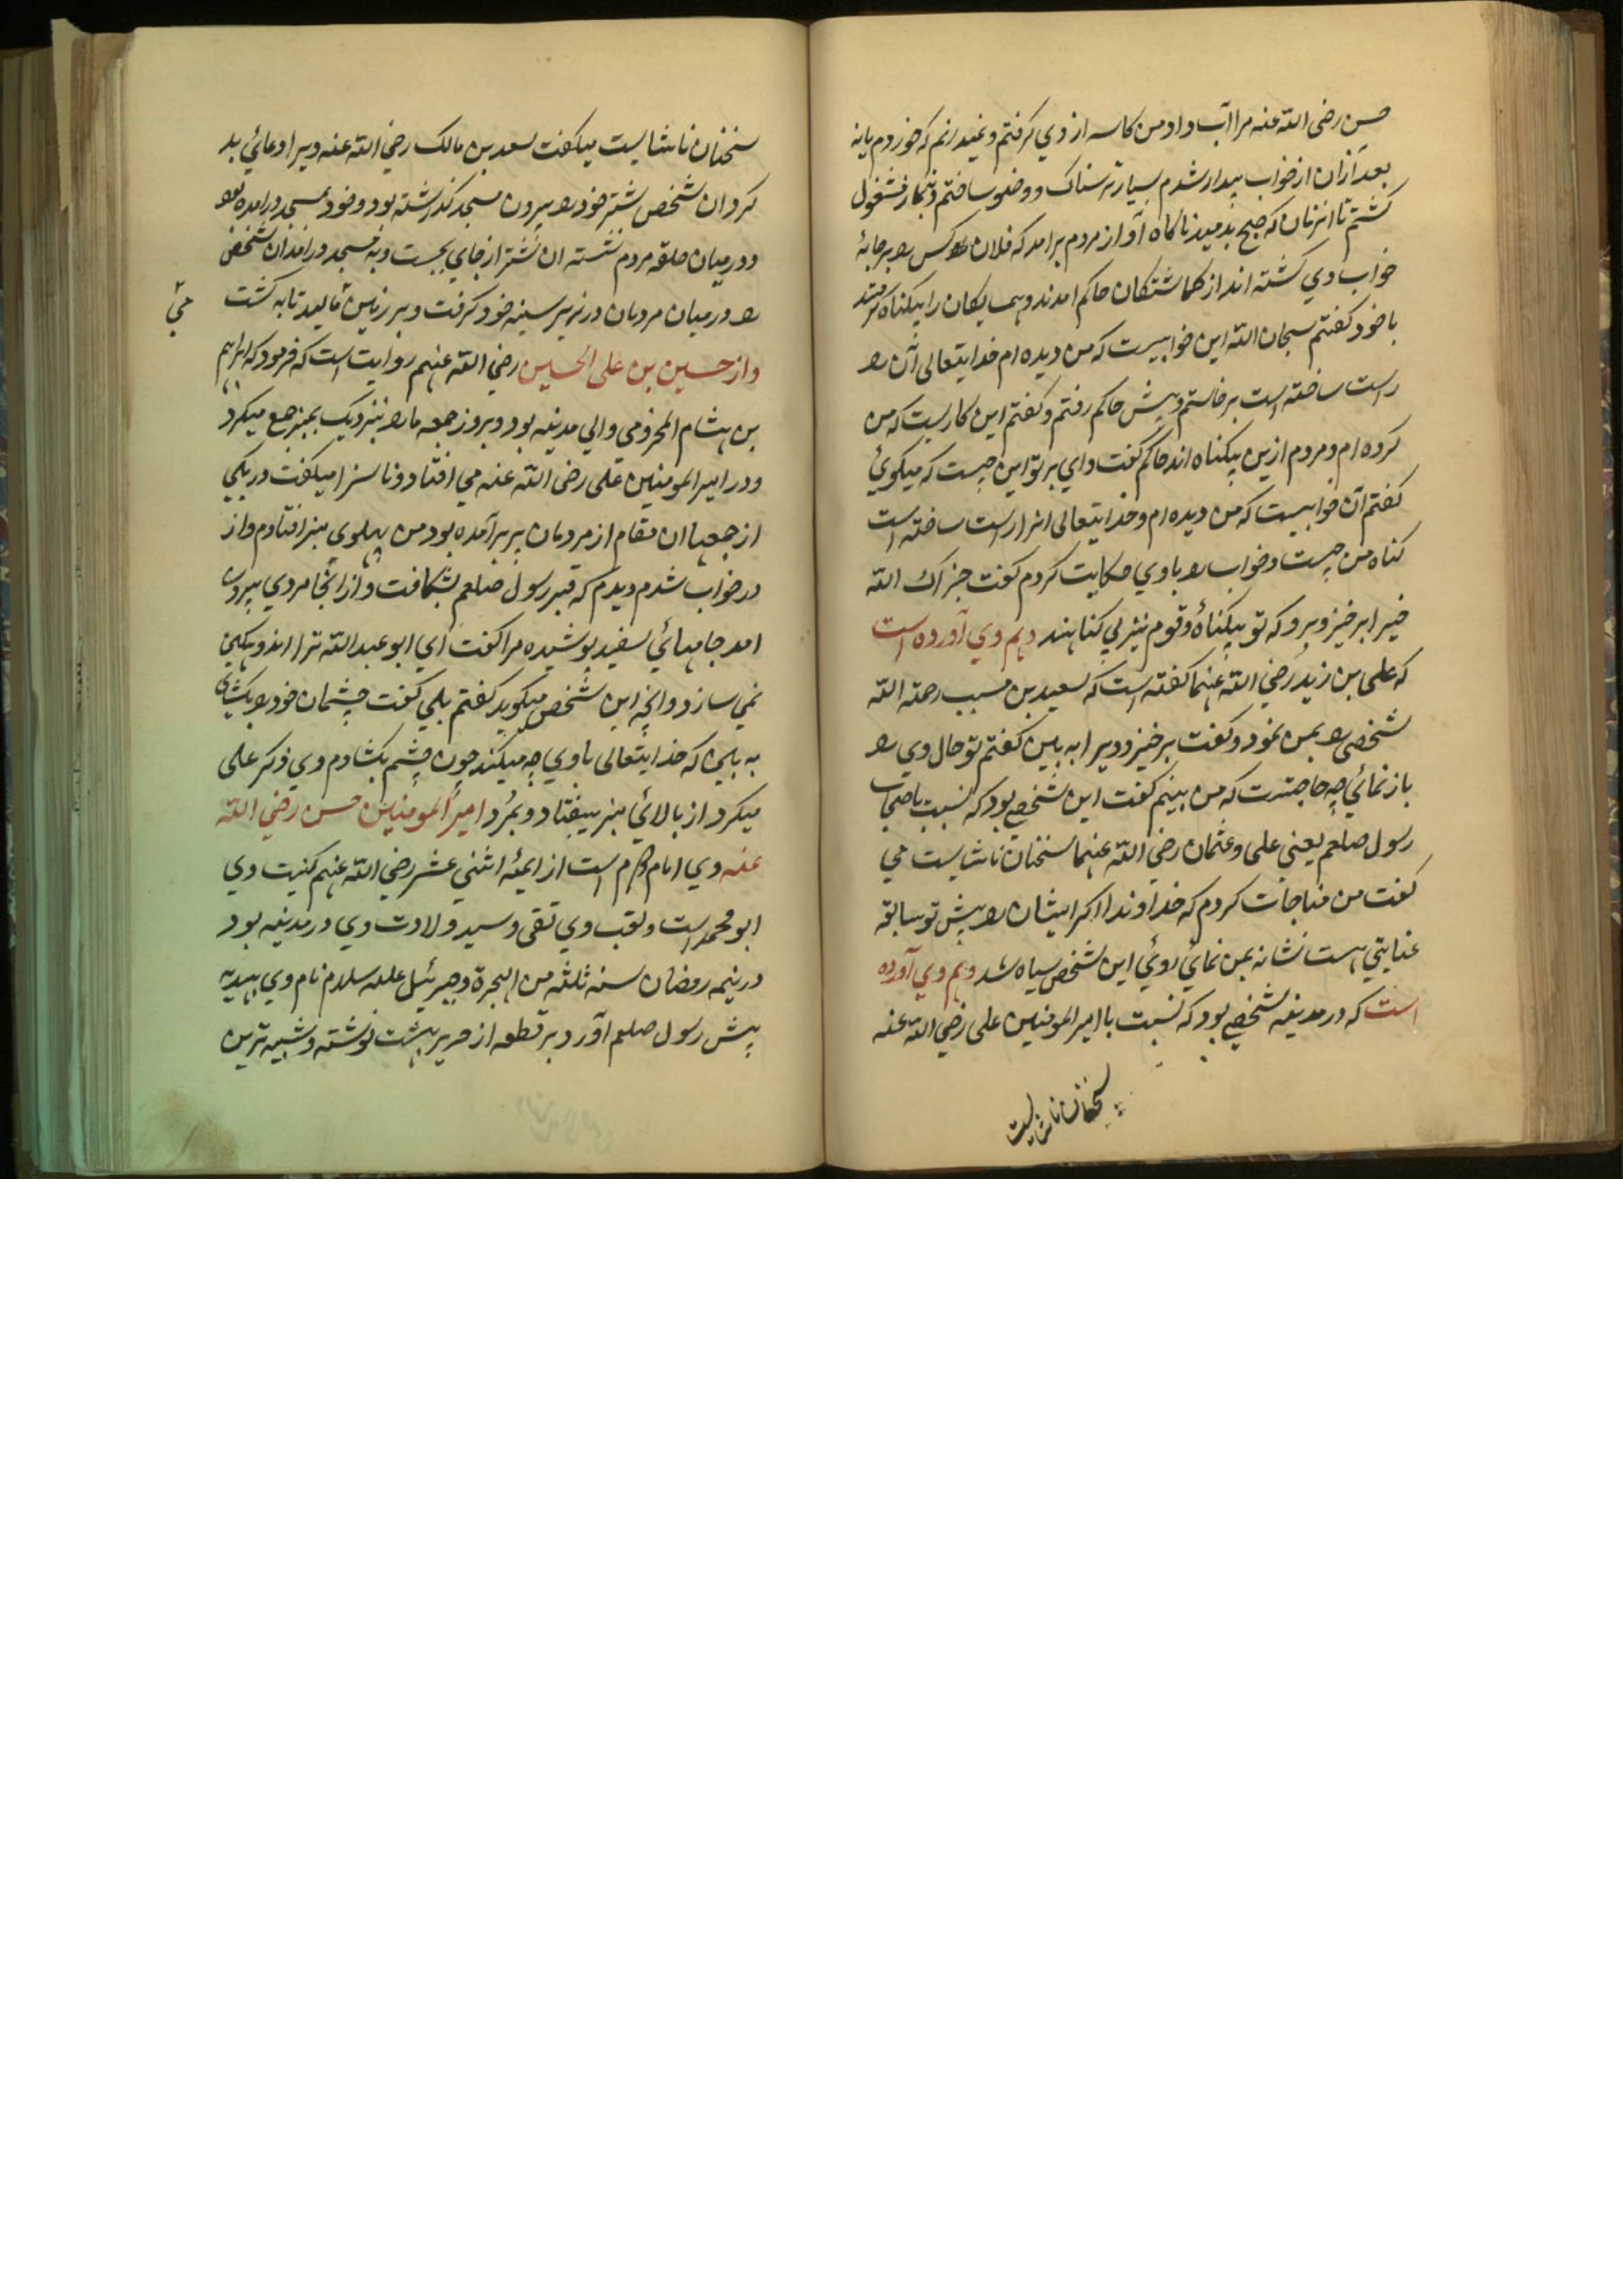 حسن رضی الله عنه مرا آب داد من کاسه از وي کرفتم و نمیدانم که خوردم یا نه
بعد ازان از خواب بیدار شدم بسیار ترسناک و وضو ساختم و بنماز مشغول
کشتم تا انزمان که صبح بدمید ناکاه آواز مردم برامد که فلان کس را بر جامهٔ
خواب وي کشته اند از کماشتکان حاکم امدند و همسایکان را بیکناه کرفتند
با خود کفتم سبحان الله این خوابیست که من دیده ام خدایتعالی آن را
راست ساخته است برخاستم و پیش حاکم رفتم و کفتم این کاریست که من
کرده ام و مردم ازین بیکناه اند حاکم کفت واي بر تو این چیست که میکوئي
کفتم آن خوابیست که من دیده ام و خدایتعالی انرا راست ساخته است
کناه من چیست و خواب را با وي حکایت کردم کفت جزاک الله
خیرا برخیز و برو که تو بیکناه و قوم نیز بي کناهند و هم وي آورده است
که علی بن زید رضي الله عنهما کفته است که سعید بن مسیب رحمة الله
شخصی را بمن نمود و کفت برخیز و ویرا به بین کفتم تو حال وي را
باز نمائي چه حاجتست که من بینم کفت این شخصي بود که نسبت باصحاب
رسول صلعم یعنی علی و عثمان رضي الله عنهما سخنان ناشایست مي
کفت من مناجات کردم که خداوندا اکر ایشان را پیش تو سابقه
عنایتي هست نشانه بمن نمائي روئي این شخص سیاه شد و هم وي آورده
است که در مدینه شخصي بود که نسبت با امیر المومنین علی رضي الله عنه
سخنان ناشایست
سخنان ناشایست میکفت سعد بن مالک رضي الله عنه ویرا دعائي بد
کرد ان شخص شتر خود را بیرون مسجد کذاشته بود و خود بمسجد درامده بود
و در میان حلقه مردم نشسته ان شتر از جاي بجست و به مسجد درامد ان شخص
را در میان مردمان در زیر سینه خود کرفت و بر زمین مالید تا به کشت
مي
و از حسین بن علی الحسین رضي الله عنهم روایت است که فرمود که ابراهیم
بن هشام المخزومي والي مدینه بود و بروز جمعه مارا بنزدیک بمنبر جمع میکرد
و در امیر المومنین علی رضی الله عنه مي افتاد و ناسزا میکفت در یکي
از جمعها ان مقام از مردمان پر برآمده بود من پهلوي منبر افتادم و از
در خواب شدم دیدم که قبر رسول صلعم بشکافت و از انجا مردي بیرون
امد جامهائي سفید پوشیده مرا کفت اي ابو عبد الله ترا اندوهکین
نمي سازد وانچه این شخص میکوید کفتم بلي کفت چشمان خود را بکشاي
به بین که خدایتعالی با وي چه میکند چون چشم بکشادم وي ذکر علی
میکرد از بالائي منبر بیفتاد و بمرد امیر المومنین حسن رضي الله
عنه وي امام دوم است از ایمه اثني عشر رضي الله عنهم کنیت وي
ابو محمد است و لقب وي تقی و سید ولادت وي در مدینه بود
در نیمه رمضان سنه ثلثه من الهجرة و جبرئیل علیه سلام نام وي بهدیه
پیش رسول صلعم آورد بر قطعه از حریر بهشت نوشته و شبیه ترین